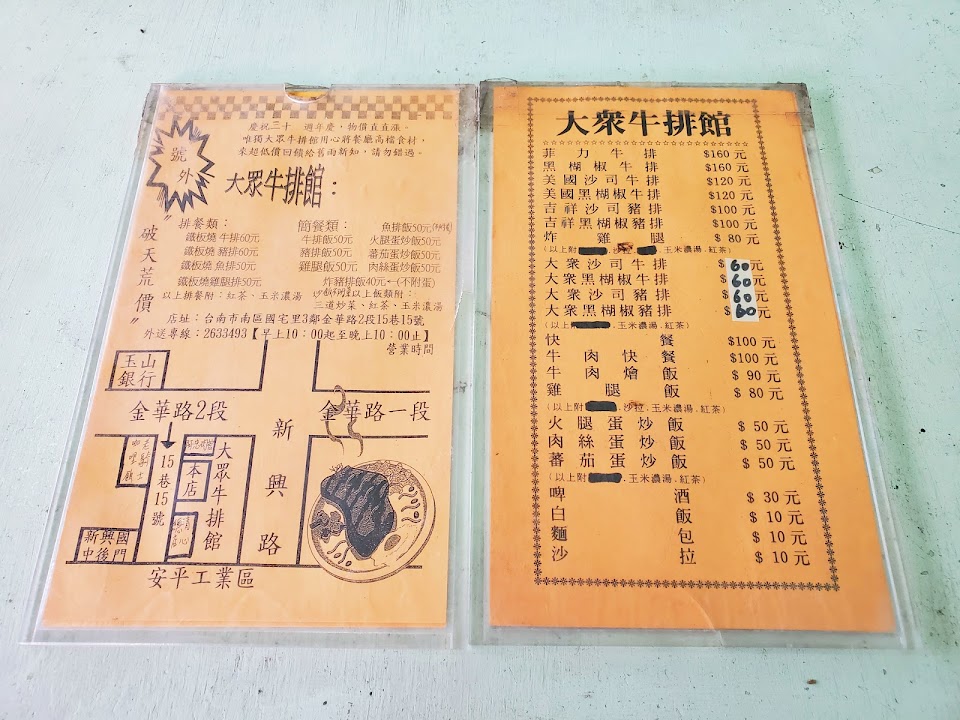 慶祝二十 週年慶，物價直直漲。
唯獨大眾牛排館用心將餐廳高檔食材，
來超低價回饋給舊雨新知，請勿錯過。
號外
大眾牛排館：
〝破天荒價〞
排餐類：
鐵板燒 牛排60元
鐵板燒 豬排60元
鐵板燒 魚排50元
鐵板燒雞腿排50元
以上排餐附：紅茶、玉米濃湯
簡餐類：
牛排飯50元
豬排飯50元
雞腿飯50元
魚排飯50元
火腿蛋炒飯50元
蕃茄蛋炒飯50元
肉絲蛋炒飯50元
炸豬排飯40元←(不附蛋)
以上飯類附：
三道炒菜、紅茶、玉米濃湯
店址：台南市南區國宅里3鄰金華路2段15巷15號
外送專線：2633493【早上10：00起至晚上10：00止】
營業時間
玉山
銀行
金華路2段
金華路一段
新興路
15巷15號
本店
大眾牛排館
新興國
中後門
安平工業區
大眾牛排館
菲力牛排 $160元
黑楜椒牛排 $160元
美國沙司牛排 $120元
美國黑楜椒牛排 $120元
吉祥沙司豬排 $100元
吉祥黑楜椒豬排 $100元
炸雞腿 $ 80元
(以上附 .玉米濃湯.紅茶)
大衆沙司牛排 60元
大衆黑楜椒牛排 60元
大衆沙司豬排 60元
大衆黑楜椒豬排 $ 60元
(以上 .玉米濃湯.紅茶)
快餐 $100元
牛肉快餐 $100元
牛肉燴飯 $ 90元
雞腿飯 $ 80元
(以上附 .沙拉.玉米濃湯.紅茶)
火腿蛋炒飯 $ 50元
肉絲蛋炒飯 $ 50元
蕃茄蛋炒飯 $ 50元
(以上附 .玉米濃湯.紅茶)
啤酒 $ 30元
白飯 $ 10元
麵包 $ 10元
沙拉 $ 10元